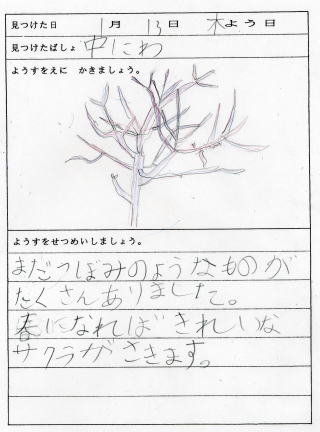 見つけた日 1月 13日 木よう日
見つけたばしょ 中にわ
ようすをえに かきましょう。
ようすをせつめいしましょう。
まだつぼみのようなものが
たくさんありました。
春になれば きれいな
サクラがさきます。